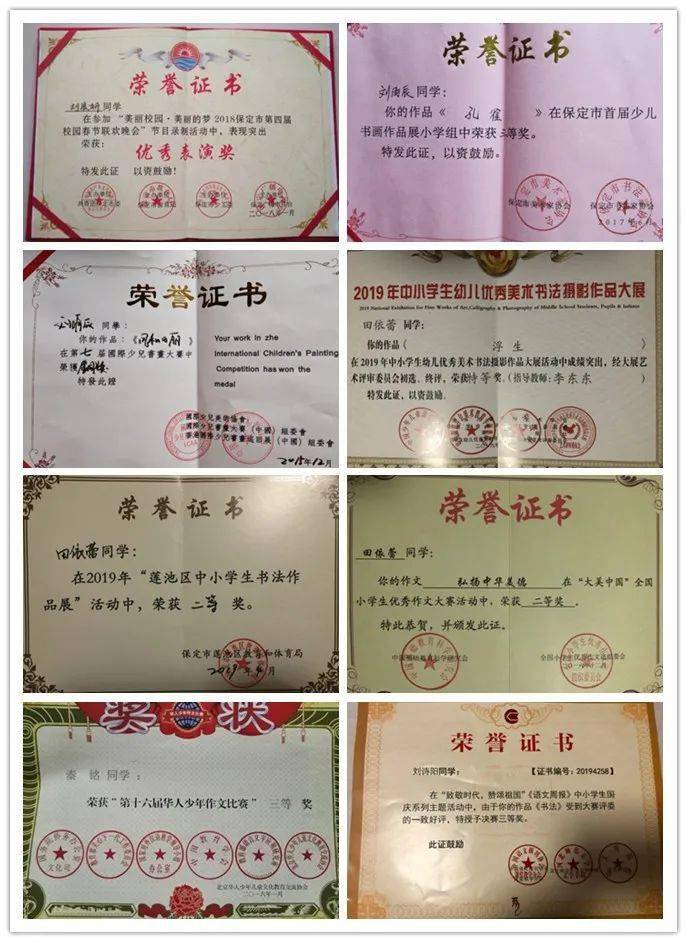 荣誉证书
同学
在参加“美丽校园·美丽的梦2018保定市第四届
校园春节联欢晚会”节目录制活动中，表现突出
荣获：
优秀表演奖
特发此证 以资鼓励！
二〇一八年一月
荣誉证书
同学：
你的作品《孔雀》在保定市首届少儿
书画作品展小学组中荣获三等奖。
特发此证，以资鼓励。
保定市美术家协会 保定市书法家协会
荣誉证书
同學：
你的作品：《》
在第七届國際少兒書畫大賽中
榮獲
特發此證
Your work in zhe
International Children's Painting
Competition has won the
medal
國際少兒美術協會
國際少兒書畫大賽（中國）組委會
（中國）組委會
2015年12月
2019年中小学生幼儿优秀美术书法摄影作品大展
2019 National Exhibition for Fine Works of Art,Calligraphy & Photography of Middle School Students, Pupils & Infants
田依蕾 同学：
你的作品（ 浮生 ）
在2019年中小学生幼儿优秀美术书法摄影作品大展活动中成绩突出，经大展艺
术评审委员会初选、终评，荣获特等奖。（指导教师：李东东）
特发此证，以资鼓励。
荣誉证书
田依蕾同学：
在2019年“莲池区中小学生书法作
品展”活动中，荣获 二等 奖。
保定市莲池区教育和体育局
荣誉证书
田依蕾 同学：
你的作文 弘扬中华美德 在“大美中国”全国
小学生优秀作文大赛活动中，荣获 二等奖。
特此恭贺，并颁发此证。
奖状
秦铭同学：
荣获“第十六届华人少年作文比赛” 三等 奖
北京华人少年儿童文化教育交流协会
二〇一六年一月
荣誉证书
刘诗阳同学： 【证书编号：20194258】
在“致敬时代，赞颂祖国”《语文周报》中小学生国
庆系列主题活动中，由于你的作品《书法》受到大赛评委
的一致好评，特授予决赛三等奖。
此证鼓励